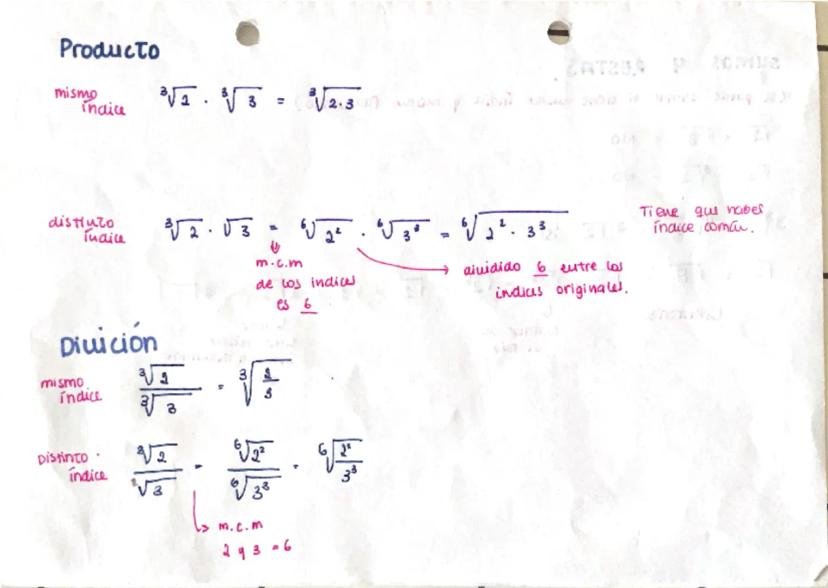 Producto
mismo índice ³√2 · ³√3 = ³√2·3
distinto índice ³√2 · √3 = ⁶√2² · ⁶√3³ = ⁶√2² · 3³
Tiene que haber índice común.
m.c.m de los indices es 6
dividido 6 entre los indices originales.
División
mismo índice ³√2 / ³√3 = ³√2/3
Distinto índice ³√2 / √3 = ⁶√2² / ⁶√3³ = ⁶√2²/3³
m.c.m
2 y 3 = 6